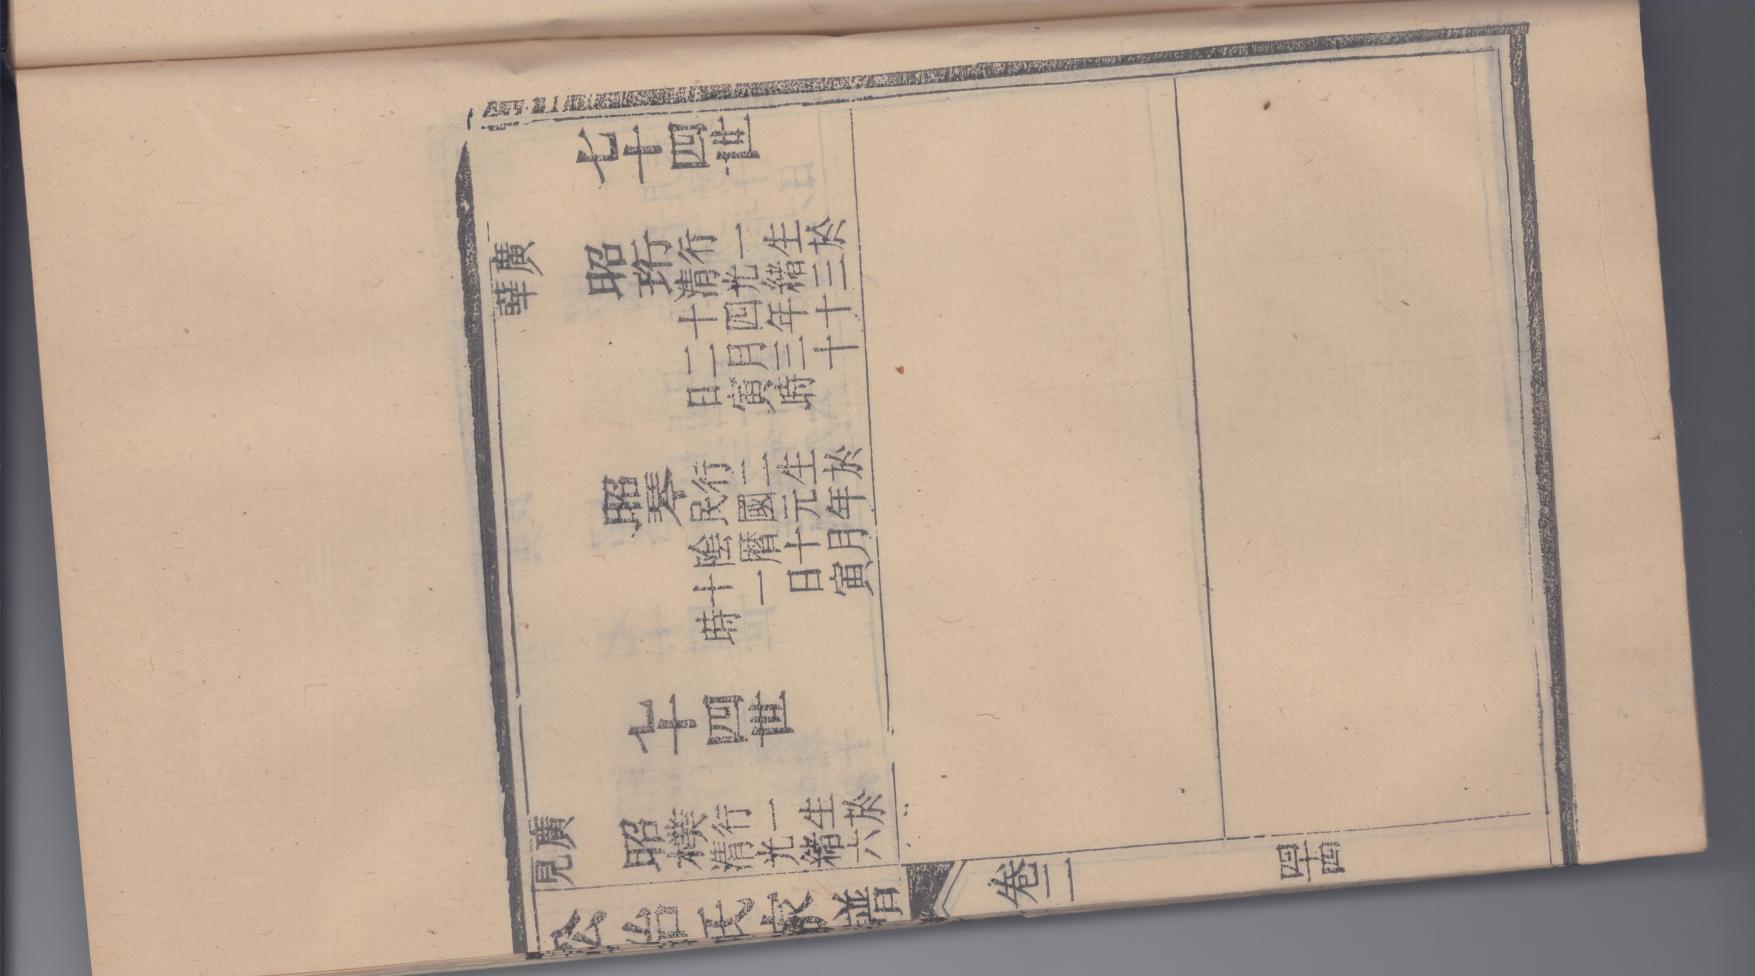 七十四世
廣華
昭珩
行一生於
清光緒三
十四年十
二月三十
日寅時
昭琴
行二生於
民國元年
陰曆十月
十一日寅
時
七十四世
廣見
昭樸
行一生於
清光緒六
公冶氏家譜
卷二
四十四